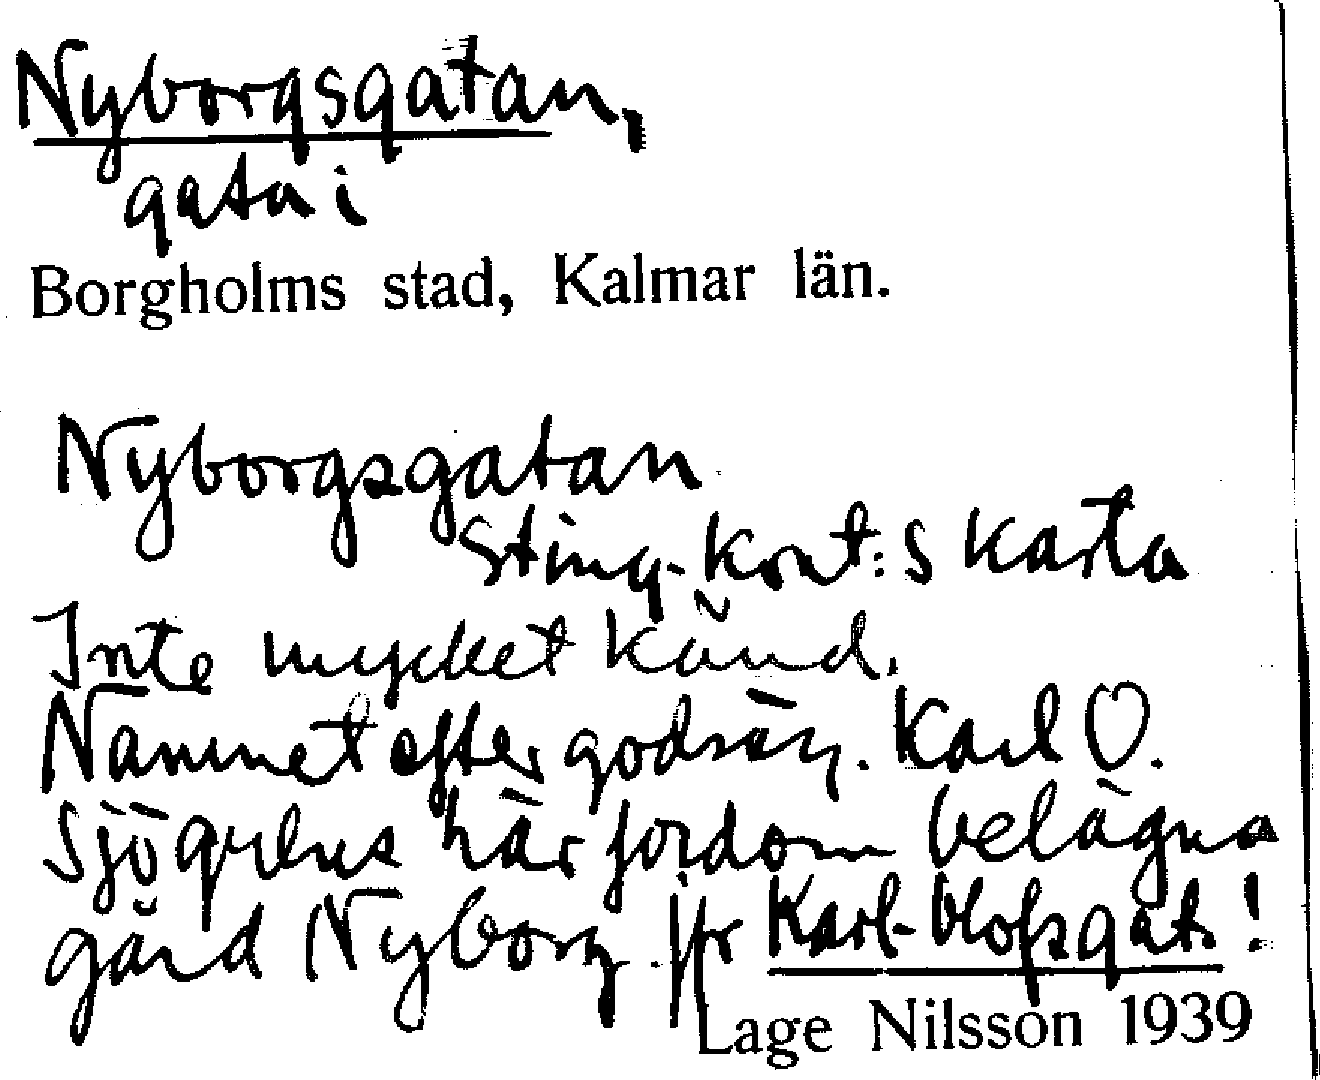 Nyborgsgatan,
gata i
Borgholms stad, Kalmar län.
Nyborgsgatan
Sting.-kont:s karta
Inte mycket känd.
Namnet efter godsäg. Karl O.
Sjögrens här fordom belägna
gård Nyborg. jfr Karl-Olofsgat. !
Lage Nilsson 1939